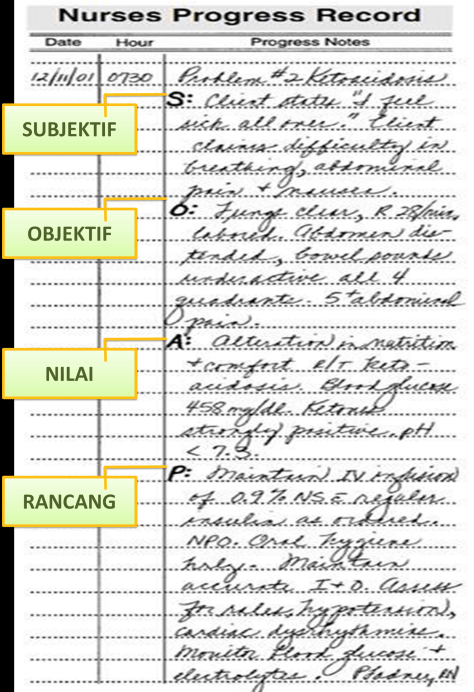 Nurses Progress Record
Date Hour Progress Notes
12/11/01 0730 Problem #2 Ketoacidosis
SUBJEKTIF
S: Client states "I feel
sick all over." Client
claims difficulty in
breathing, abdominal
pain + nausea.
OBJEKTIF
O: Lungs clear, R 28/min,
labored. Abdomen dis-
tended, bowel sounds
underactive all 4
quadrants. 5+ abdominal
pain.
NILAI
A: Alteration in nutrition
+ comfort R/T keto-
acidosis. Blood glucose
458 mg/dl. Ketones
strongly positive. pH
< 7.3.
RANCANG
P: Maintain IV infusion
of 0.9% NS regular
insulin as ordered.
NPO. Oral hygiene
hrly. Maintain
accurate I+O. Assess
for rales, hypotension,
cardiac dysrhythmias.
Monitor blood glucose +
electrolytes. RN